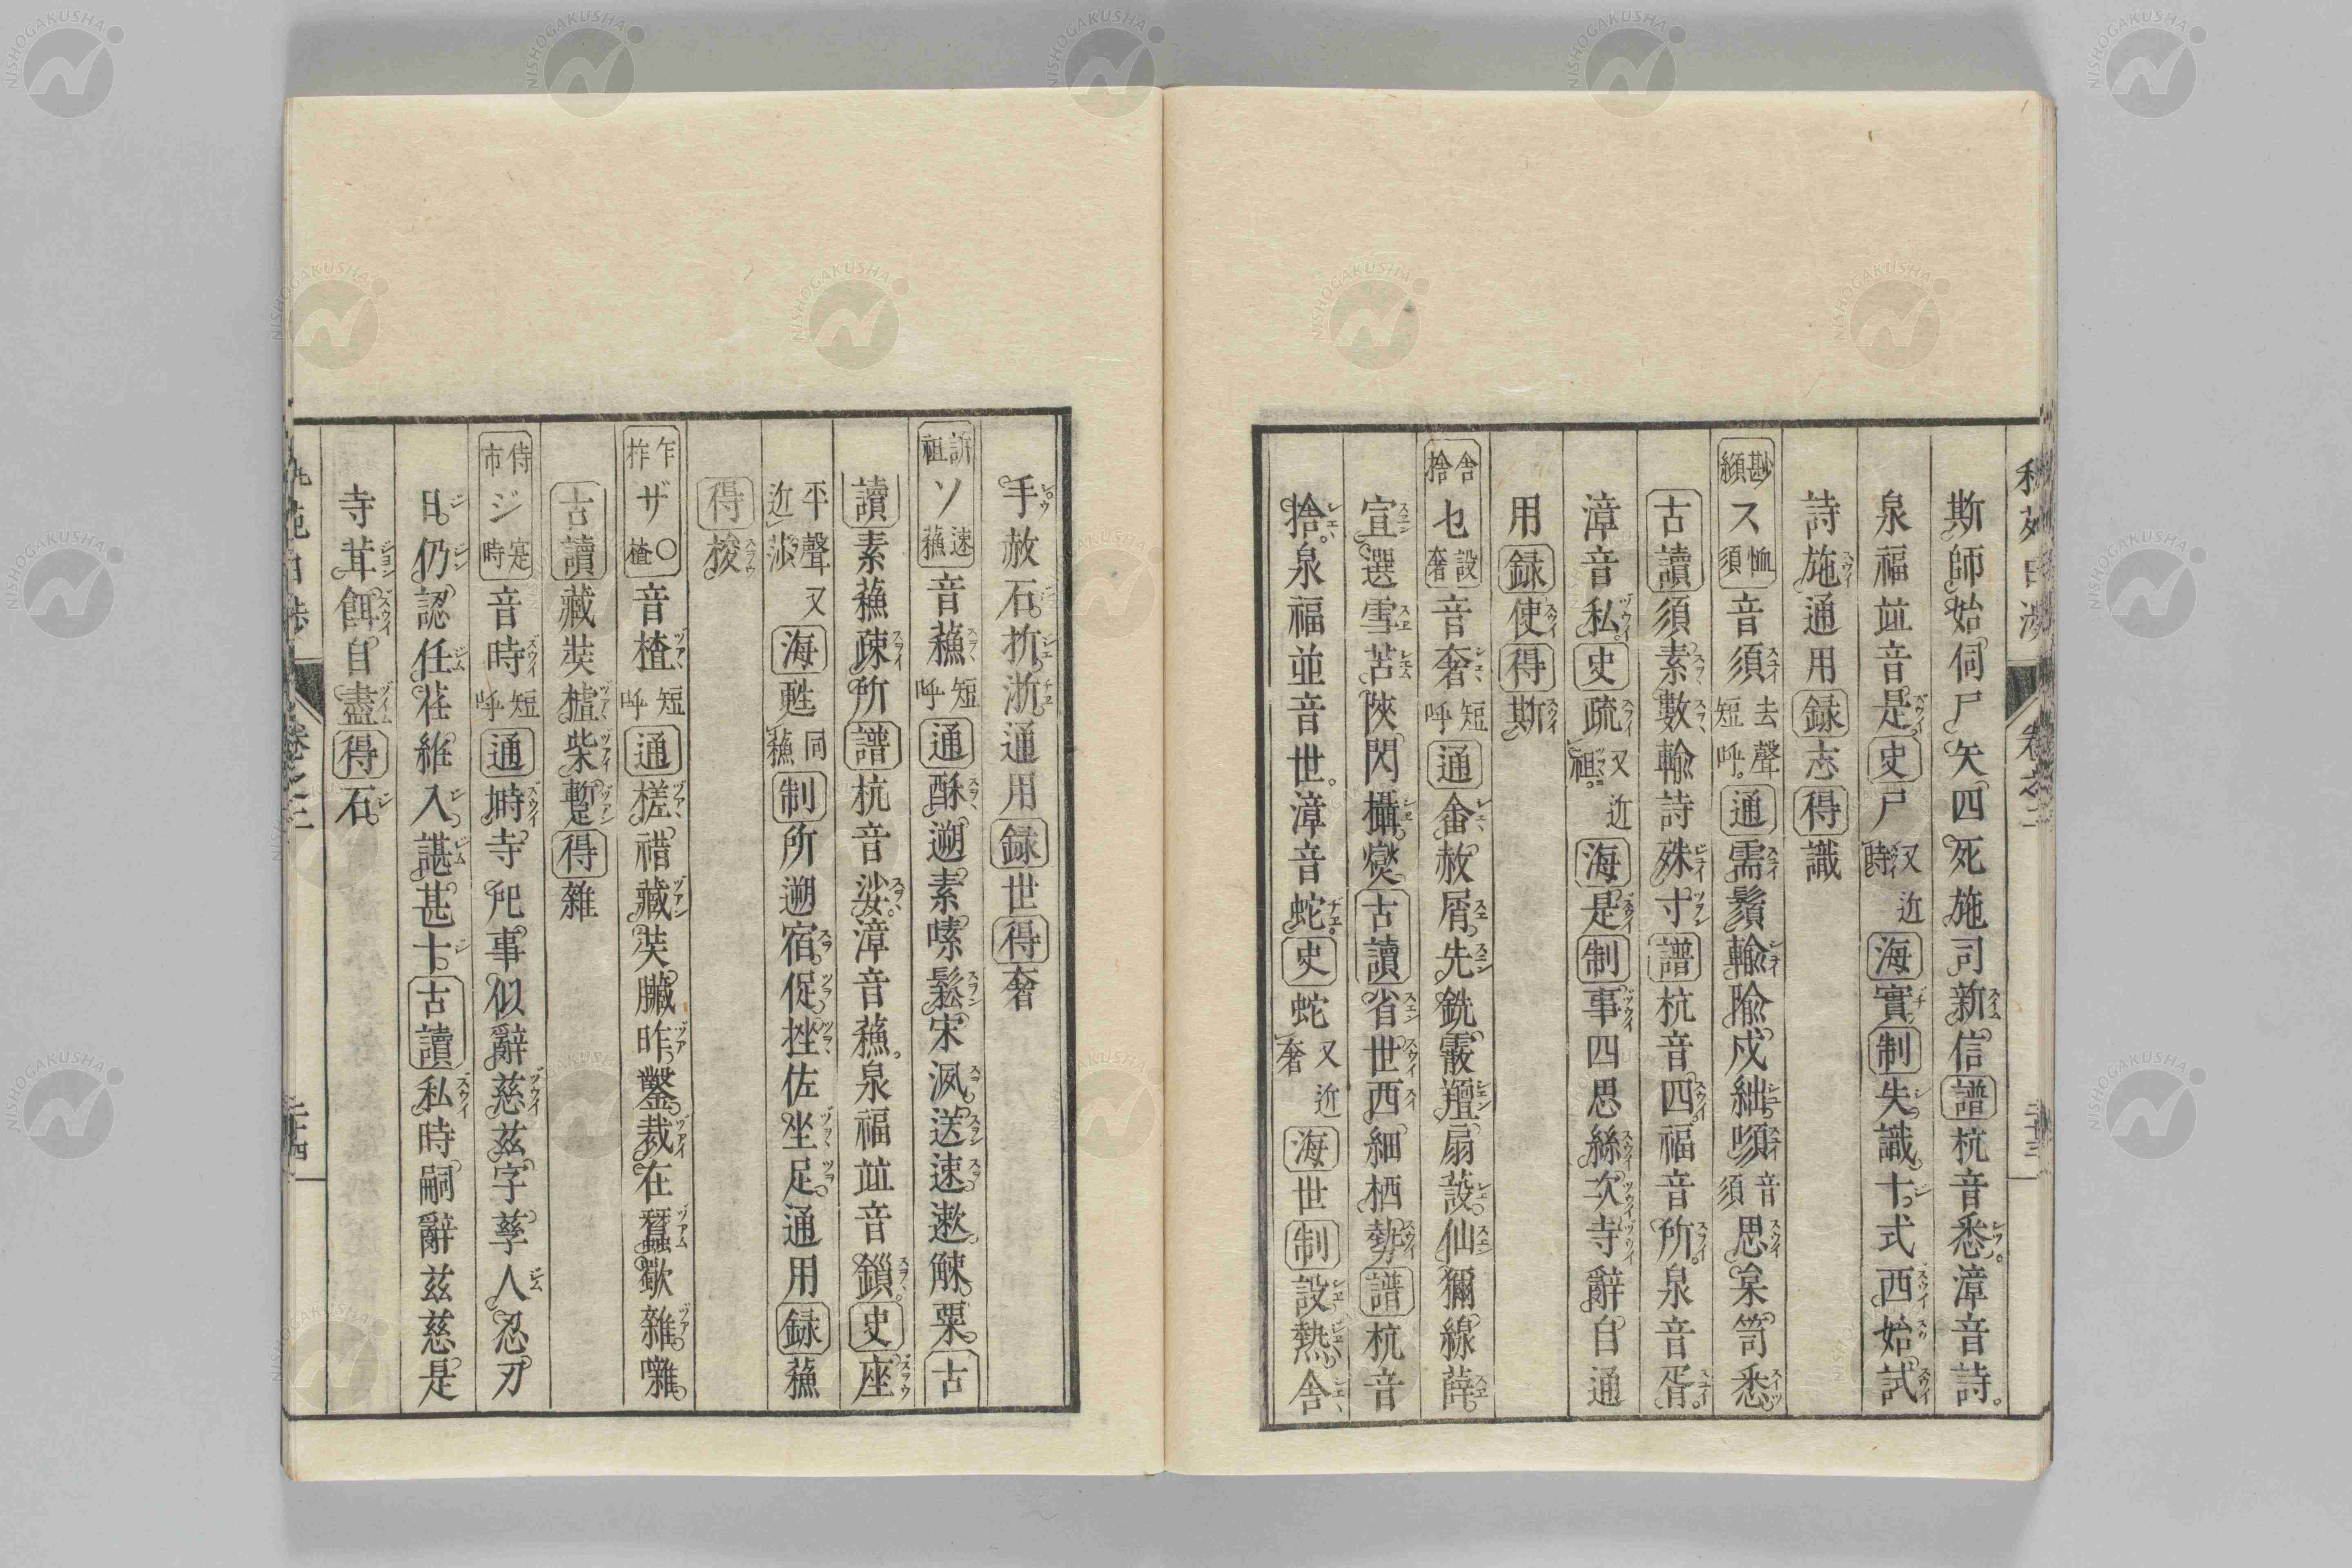 斯師始伺尸矢四死施司新信譜杭音悉漳音詩
泉福並音是史尸又近時海實制失識十式西始試
詩施通用録志得識
ス恤須音須去聲短呼通需鬚輸隃戍絀音須思枲笥悉
古讀須素數輸詩殊寸譜杭音四福音所泉音胥
漳音私史疏又近祖海是制事四思絲次寺辭自通
用録使得斯
舍捨セ設奢音奢短呼通畬赦屑先銑霰羶扇設仙獮線薛
宣選雪苫陝閃攝燮古讀省世西細栖勢譜杭音
捨泉福並音世漳音蛇史蛇又近奢海世制設熱舍
手赦石折浙通用録世得奢
訴祖ソ速蘓音蘓短呼通酥遡素嗉鬆宋夙送速遬觫粟古
讀素蘓疎所譜杭音娑漳音蘓泉福並音鎖史座
平聲近又海甦同蘓制所遡宿促挫佐坐足通用録蘓
得梭
乍柞ザ〇楂音楂短呼通槎禇藏奘臟昨鑿裁在蠶歜雜囃
古讀藏奘樝柴蹔得雜
侍市ジ寔時音時短呼通塒寺戺事似辭慈兹字孳人忍刃
日仍認任荏維入諶甚十古讀私時嗣辭兹慈是
寺茸餌自盡得石
卷之二
NISHOGAKUSHA